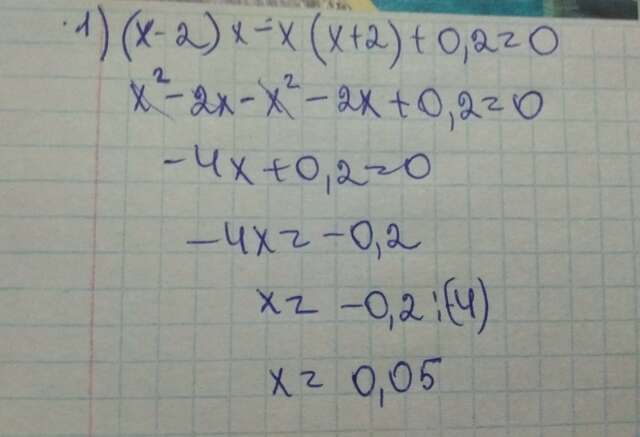 1) (x-2)x-x(x+2)+0,2=0
x²-2x-x²-2x+0,2=0
-4x+0,2=0
-4x=-0,2
x=-0,2:(-4)
x=0,05